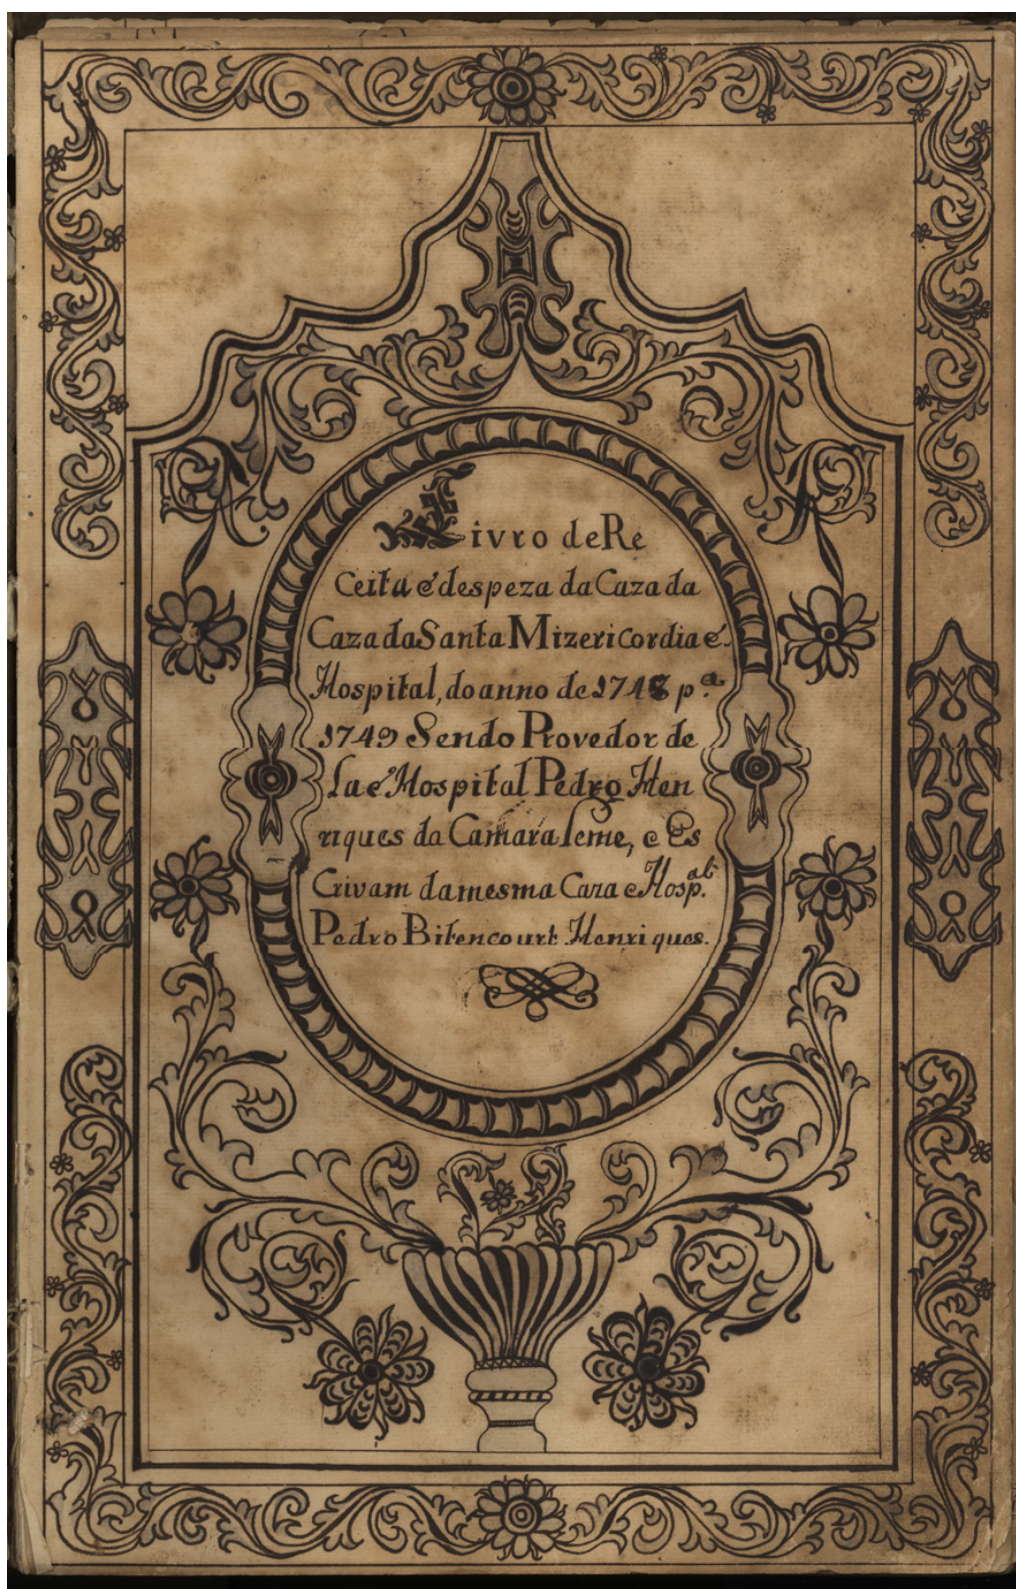 Livro de Re
Ceita é despeza da Caza da
Caza da Santa Mizericordia é
Hospital, do anno de 1748 p.ª
1749 Sendo Provedor de
La é Hospital Pedro Hen
riques da Camara leme, e Es
Crivam da mesma Caza e Hosp.al
Pedro Bitencourt Henriques.